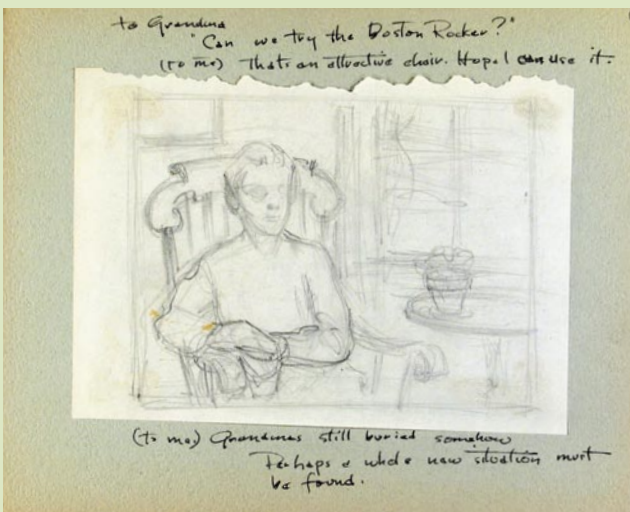 to Grandma
"Can we try the Boston Rocker?"
(to me) That's an attractive chair. Hope I can use it.
(to me) Grandmas still buried somehow
Perhaps a whole new situation must
be found.